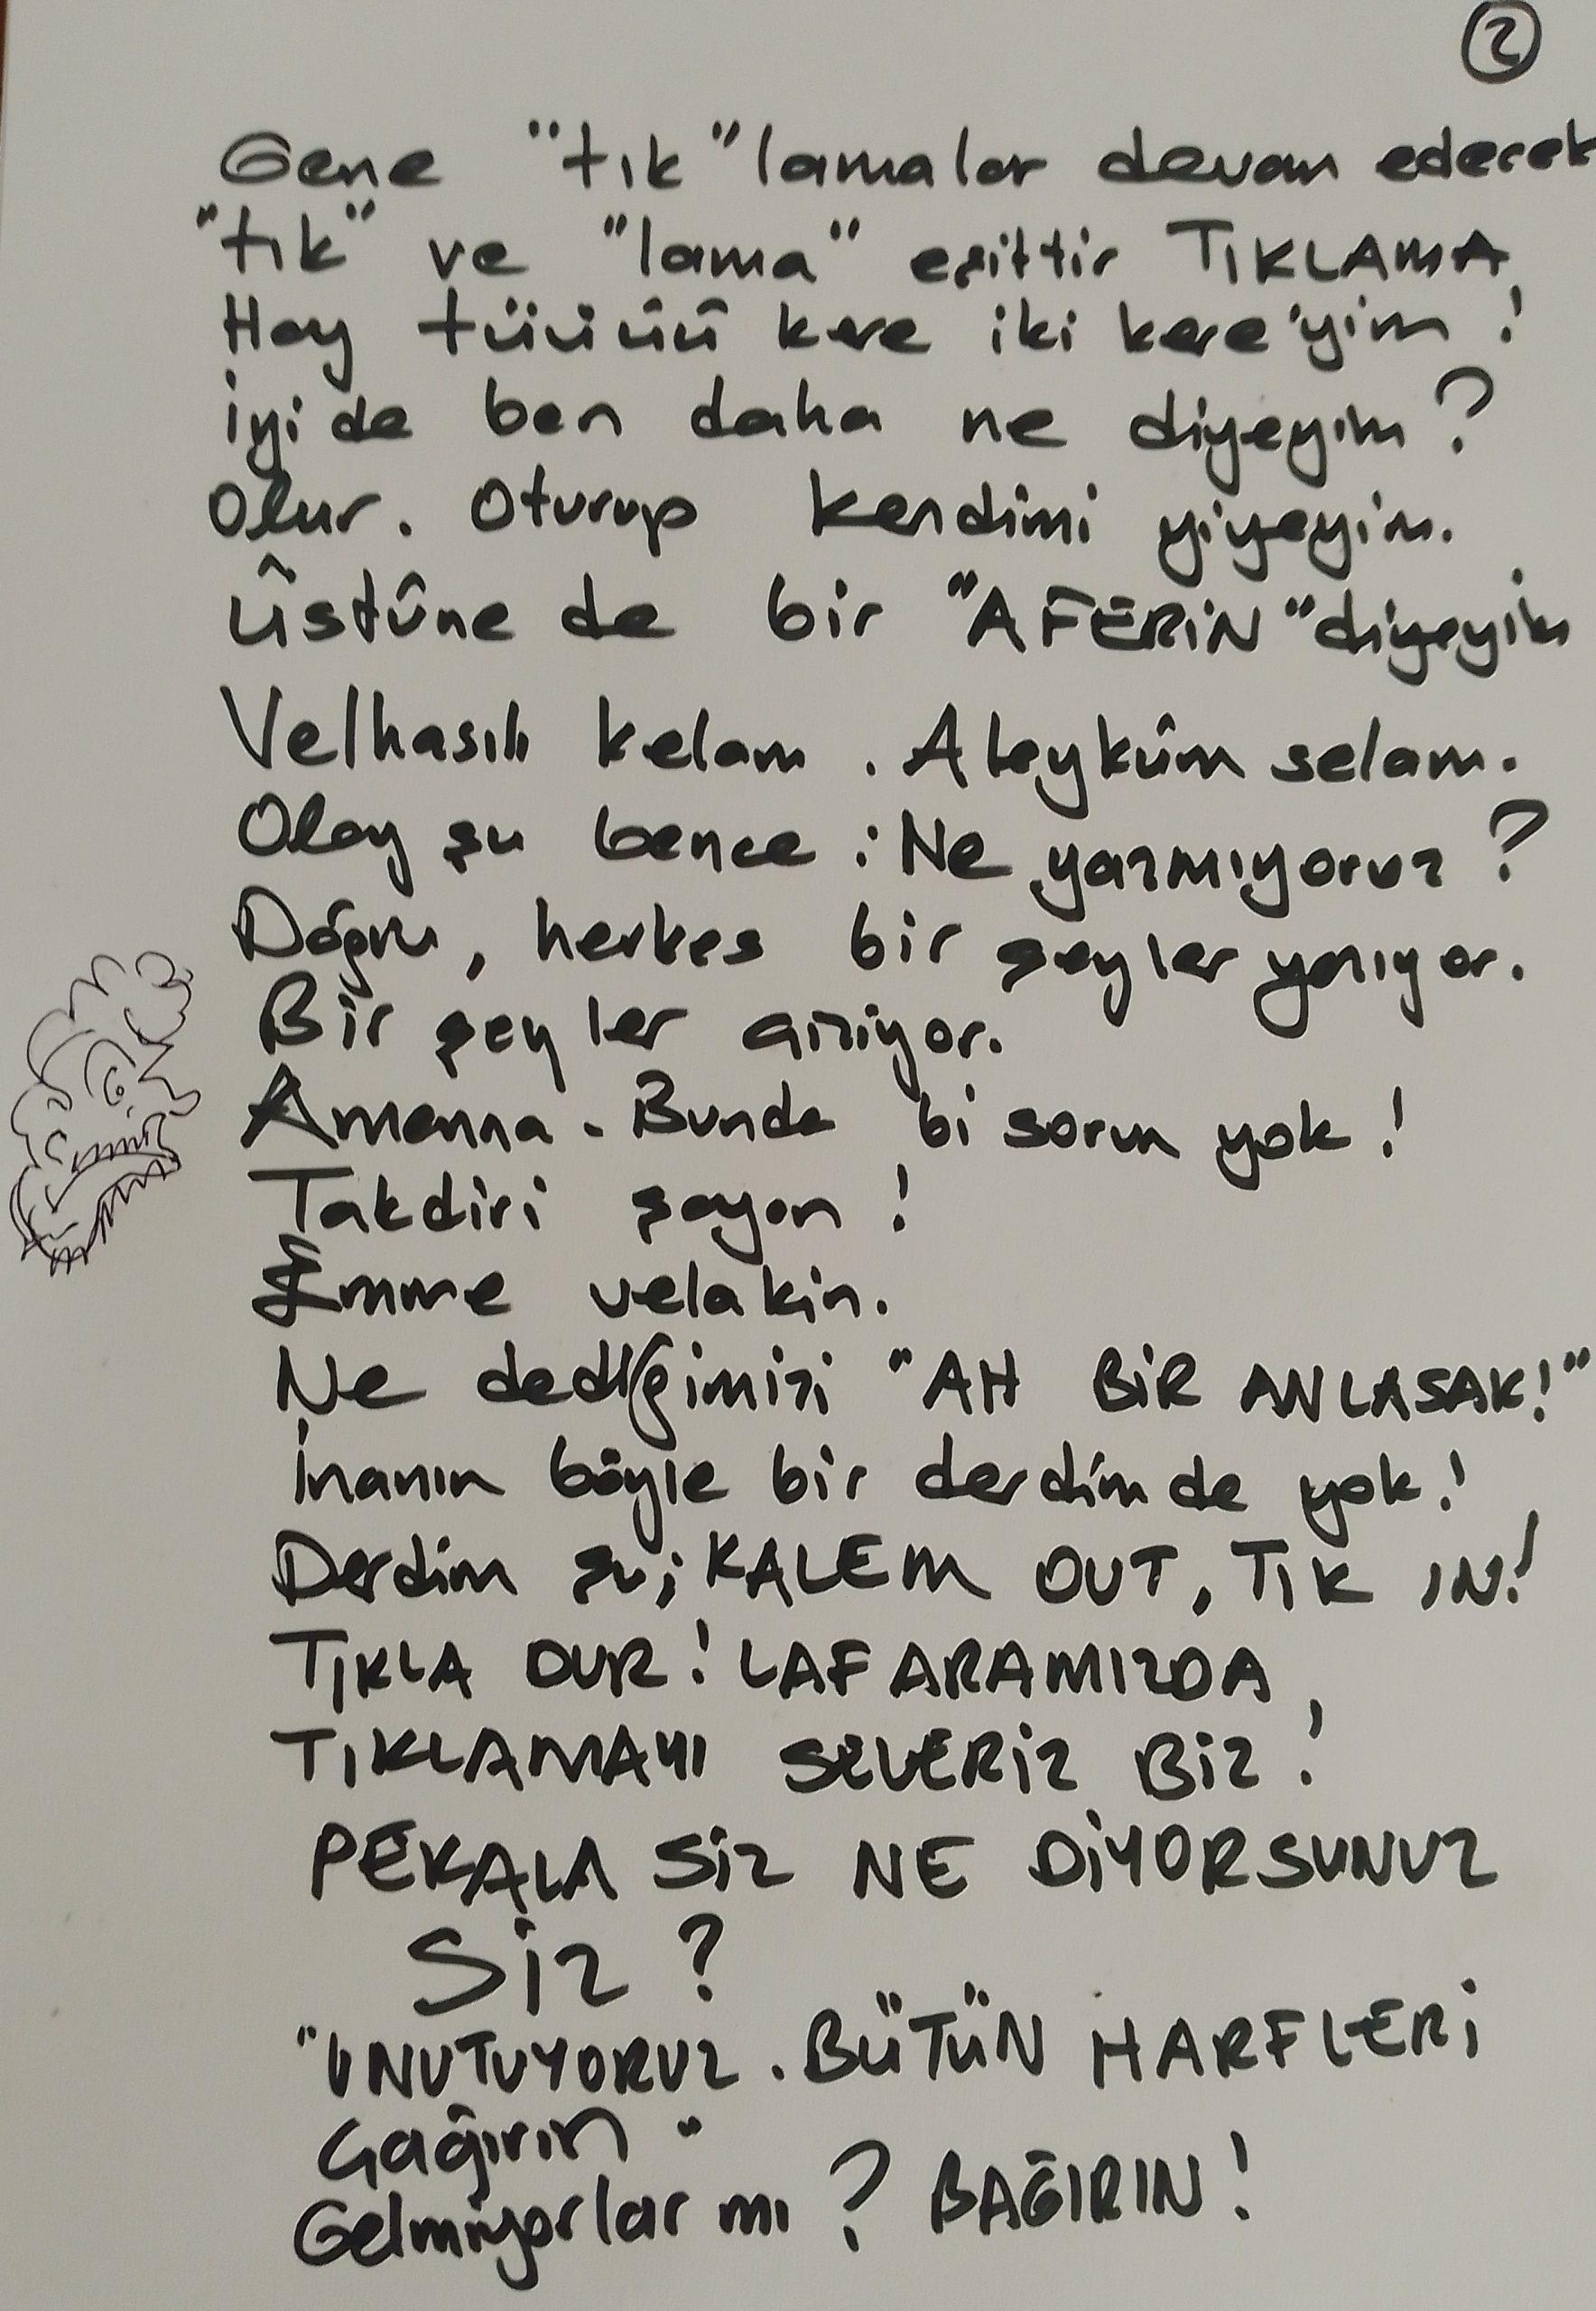 2
Gene "tık"lamalar devam edecek
"tık" ve "lama" eşittir TIKLAMA
Hay tüüüü kere iki kere'yim!
İyi de ben daha ne diyeyim?
Olur. Oturup kendimi yiyeyim.
Üstüne de bir "AFERİN" diyeyim
Velhasılı kelam. Aleyküm selam.
Olay şu bence: Ne yazmıyoruz?
Doğru, herkes bir şeyler yazıyor.
Bir şeyler çiziyor.
Amenna. Bunda bi sorun yok!
Takdiri şayan!
Emme velakin.
Ne dediğimizi "AH BİR ANLASAK!"
İnanın böyle bir derdim de yok!
Derdim şu; KALEM OUT, TIK IN!
TIKLA DUR! LAF ARAMIZDA,
TIKLAMAYI SEVERİZ BİZ!
PEKALA SİZ NE DİYORSUNUZ
SİZ?
"UNUTUYORUZ. BÜTÜN HARFLERİ
Çağırın"
Gelmiyorlar mı? BAĞIRIN!